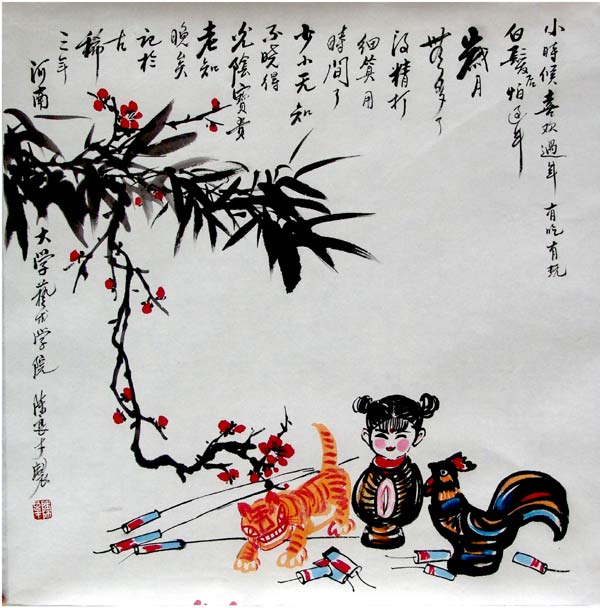 小時候喜欢過年 有吃有玩
白髮后怕过年
歲月
無多了
须精打
细算用
時間了
少小无知
不晓得
光陰寶貴
老知
晚矣
記於
古
稀
三年
河南
大学藝术学院 陈